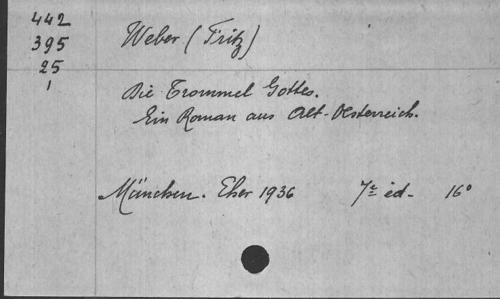 442
395
25
1
Weber (Fritz)
Die Trommel Gottes.
Ein Roman aus Alt-Oesterreich.
München. Eher 1936 7e éd. 16°